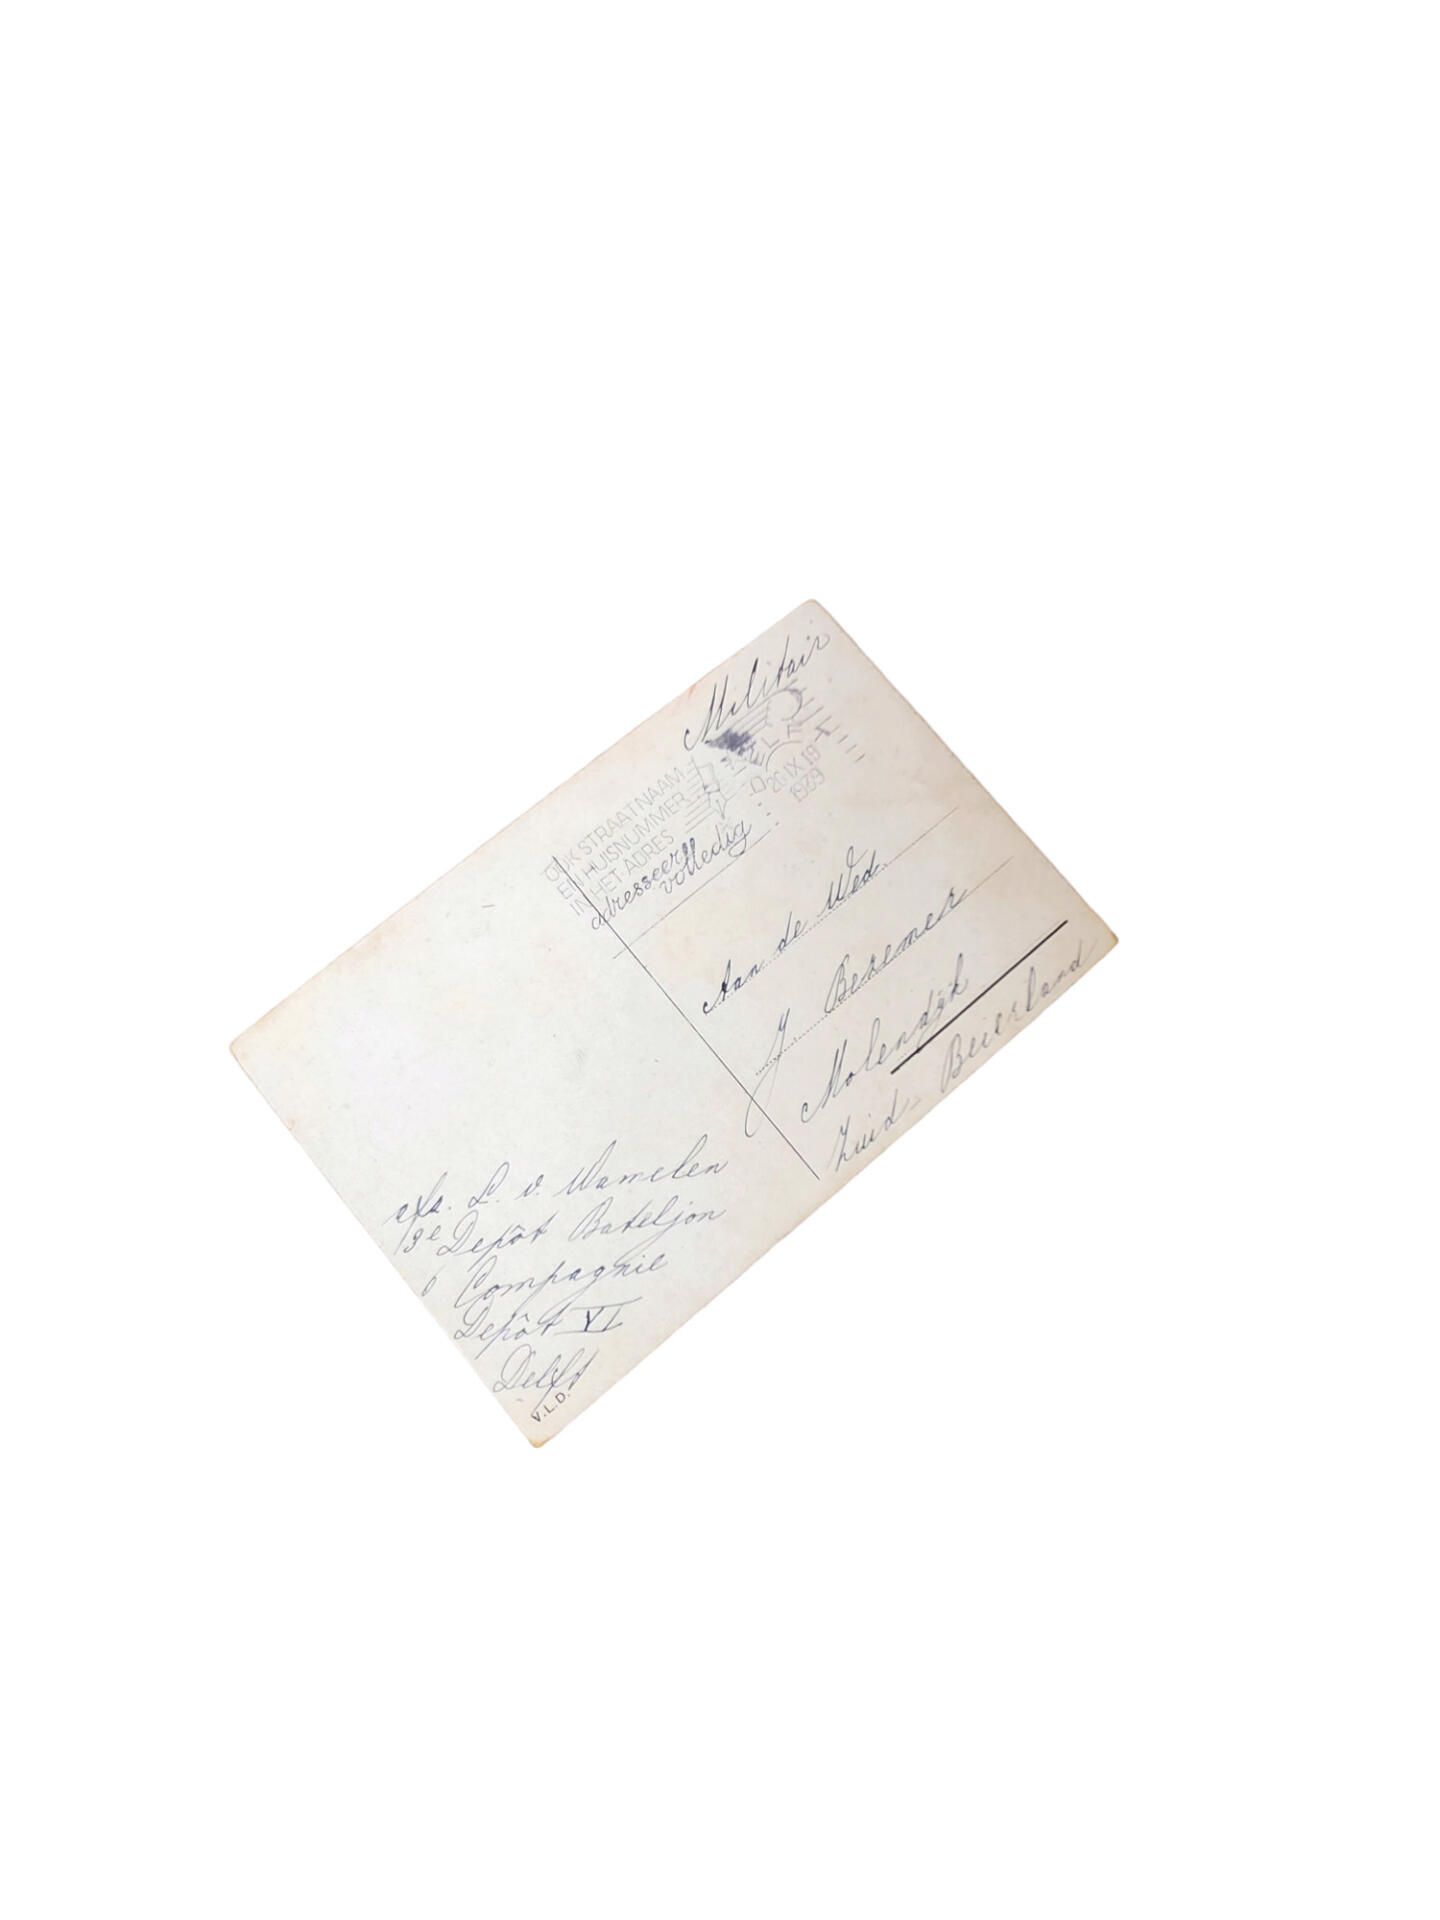 Militair
DELFT
20 IX 19
1939
OOK STRAATNAAM
EN HUISNUMMER
IN HET ADRES
adresseer
volledig
Aan de Wed.
J Bezemer
Molendijk
Zuid-Beierland
afz. L. v. Wamelen
3e Depôt Bateljon
Compagnie
Depôt VI
Delft
V.L.D.